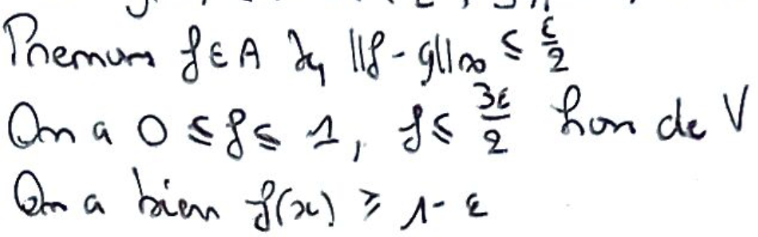 Prenons f ∈ A tq ||f - g||∞ ≤ ε/2
On a 0 ≤ f ≤ 1, f ≤ 3ε/2 hors de V
On a bien f(x) ≥ 1 - ε